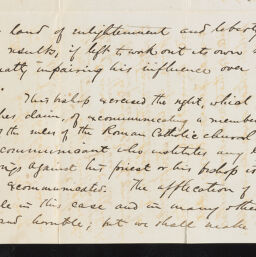 land of enlightenment and liberty
results, if left to work out its own
impairing his influence over
This bishop exercised the right, which
claim, of excommunicating a member
the rules of the Roman Catholic church
communicant who institutes any
against his priest or his bishop is
excommunicated. The application of
in this case and in many other
and horrible; but we shall make